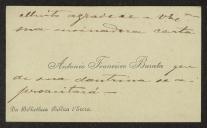 muito agradece a V. Ex.
ma
Antonio Francisco Barata que
de sua doutrina se a-
proveitará —
Da Bibliotheca Publica d'Evora.